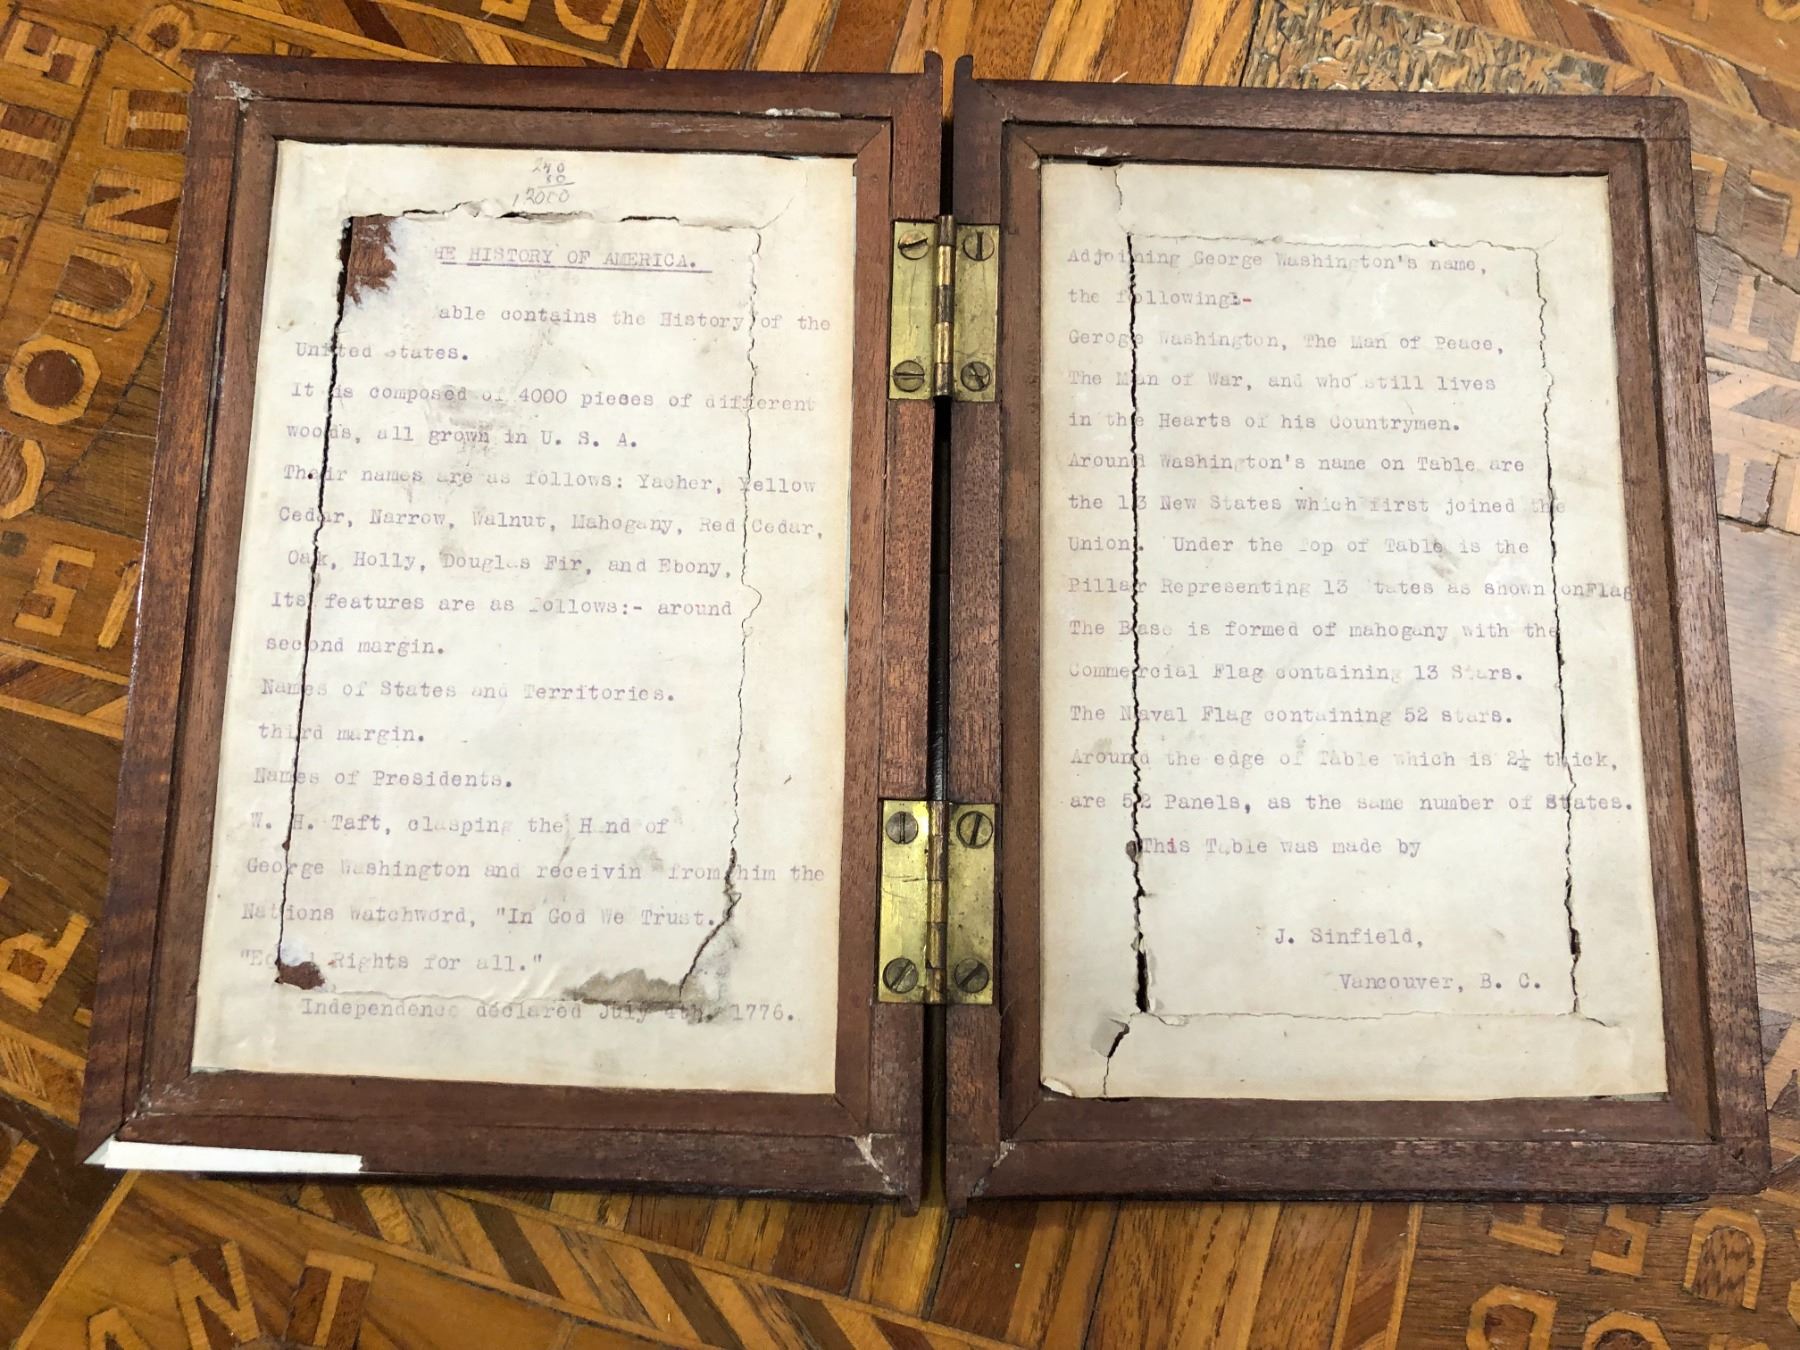 240
50
12000
HE HISTORY OF AMERICA.
able contains the History of the
United States.
It is composed of 4000 pieces of different
woods, all grown in U. S. A.
Their names are as follows: Yacher, Yellow
Cedar, Narrow, Walnut, Mahogany, Red Cedar,
Oak, Holly, Douglas Fir, and Ebony,
Its features are as follows:- around
second margin.
Names of States and Territories.
third margin.
Names of Presidents.
W. H. Taft, clasping the Hand of
George Washington and receivin from him the
Nations Watchword, "In God We Trust.
"Equal Rights for all."
Independence declared July 4th, 1776.
Adjoining George Washington's name,
the following:-
Geroge Washington, The Man of Peace,
The Man of War, and who still lives
in the Hearts of his Countrymen.
Around Washington's name on Table are
the 13 New States which first joined the
Union. Under the Top of Table is the
Pillar Representing 13 States as shown onFlag
The Base is formed of mahogany with the
Commercial Flag containing 13 Stars.
The Naval Flag containing 52 stars.
Around the edge of Table which is 2¼ thick,
are 52 Panels, as the same number of States.
This Table was made by
J. Sinfield,
Vancouver, B. C.